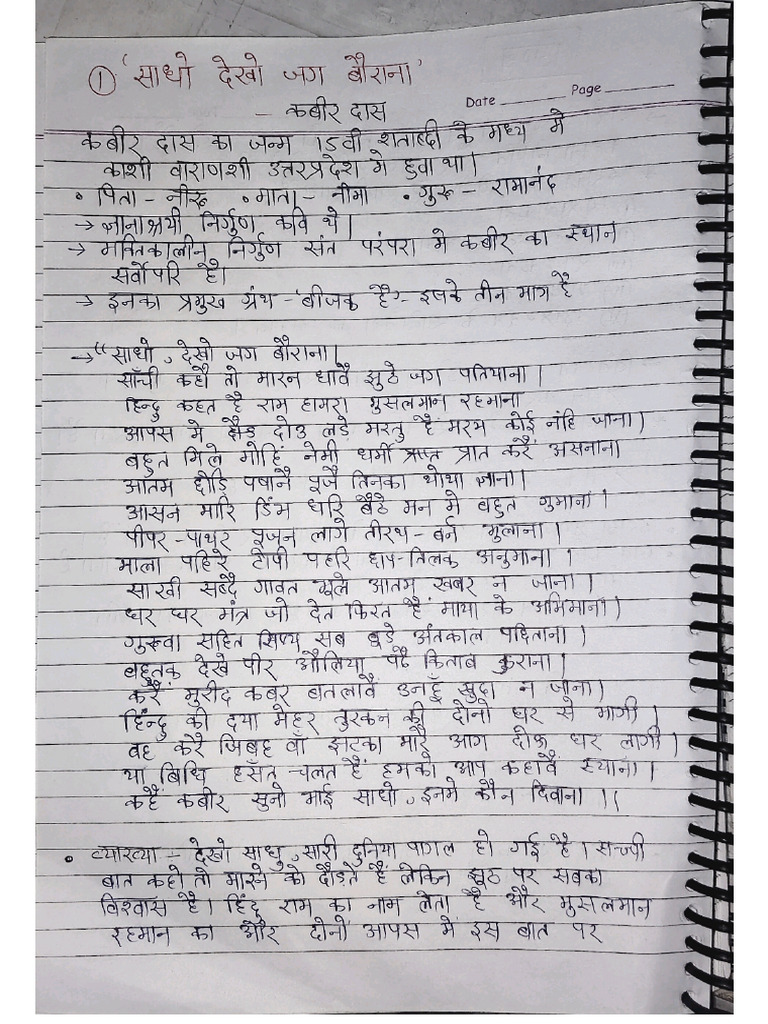 ① 'साधो देखो जग बौराना'
- कबीर दास
Date ______ Page ______
कबीर दास का जन्म 15वी शताब्दी के मध्य मे
काशी वाराणशी उत्तरप्रदेश मे हुवा था।
• पिता - नीरू • माता - नीमा • गुरू - रामानंद
→ ज्ञानाश्रयी निर्गुण कवि थे।
→ भक्तिकालीन निर्गुण संत परंपरा मे कबीर का स्थान
सर्वोपरि है।
→ इनका प्रमुख ग्रंथ - 'बीजक है' - इसके तीन भाग है
→ "साधो, देखो जग बौराना।
साँची कहौ तो मारन धावै झुठे जग पतियाना।
हिन्दु कहत है राम हामरा मुसलमान रहमाना
आपस मे दोउ लडे मरतु है मरम कोई नंहि जाना।
बहुत मिले मोहिं नेमी धर्मी प्रात करैं असनाना
आतम छोड़ि पषानै पूजै तिनका थोथा ज्ञाना।
आसन मारि डिंभ धरि बैठे मन मे बहुत गुमाना।
पीपर-पाथर पूजन लागे तीरथ-बर्न भुलाना।
माला पहिरे टोपी पहरि छाप-तिलक अनुमाना।
साखी सब्दै गावत भूले आतम खबर न जाना।
घर घर मंत्र जो देत फिरत हैं माया के अभिमाना।
गुरुवा सहित सिष्य सब बुडे अंतकाल पछिताना।
बहुतक देखे पीर औलिया पढै किताब कुराना।
करैं मुरीद कबर बतलावैं उनहूँ खुदा न जाना।
हिंन्दु की दया मेहर तुरकन की दोनो घर से भागी।
वह करै जिबह वाँ झटका मारै आग दोऊ घर लागी।
या बिधि हँसत चलत हैं हमको आप कहावै स्याना।
कहै कबीर सुनो भाई साधो, इनमे कौन दिवाना।।
• व्याख्या - देखो साधु, सारी दुनिया पागल हो गई है। सच्ची
बात कहो तो मारने को दौड़ते है लेकिन झूठ पर सबका
विश्वास है। हिंदू राम का नाम लेता है और मुसलमान
रहमान का और दोनो आपस में इस बात पर